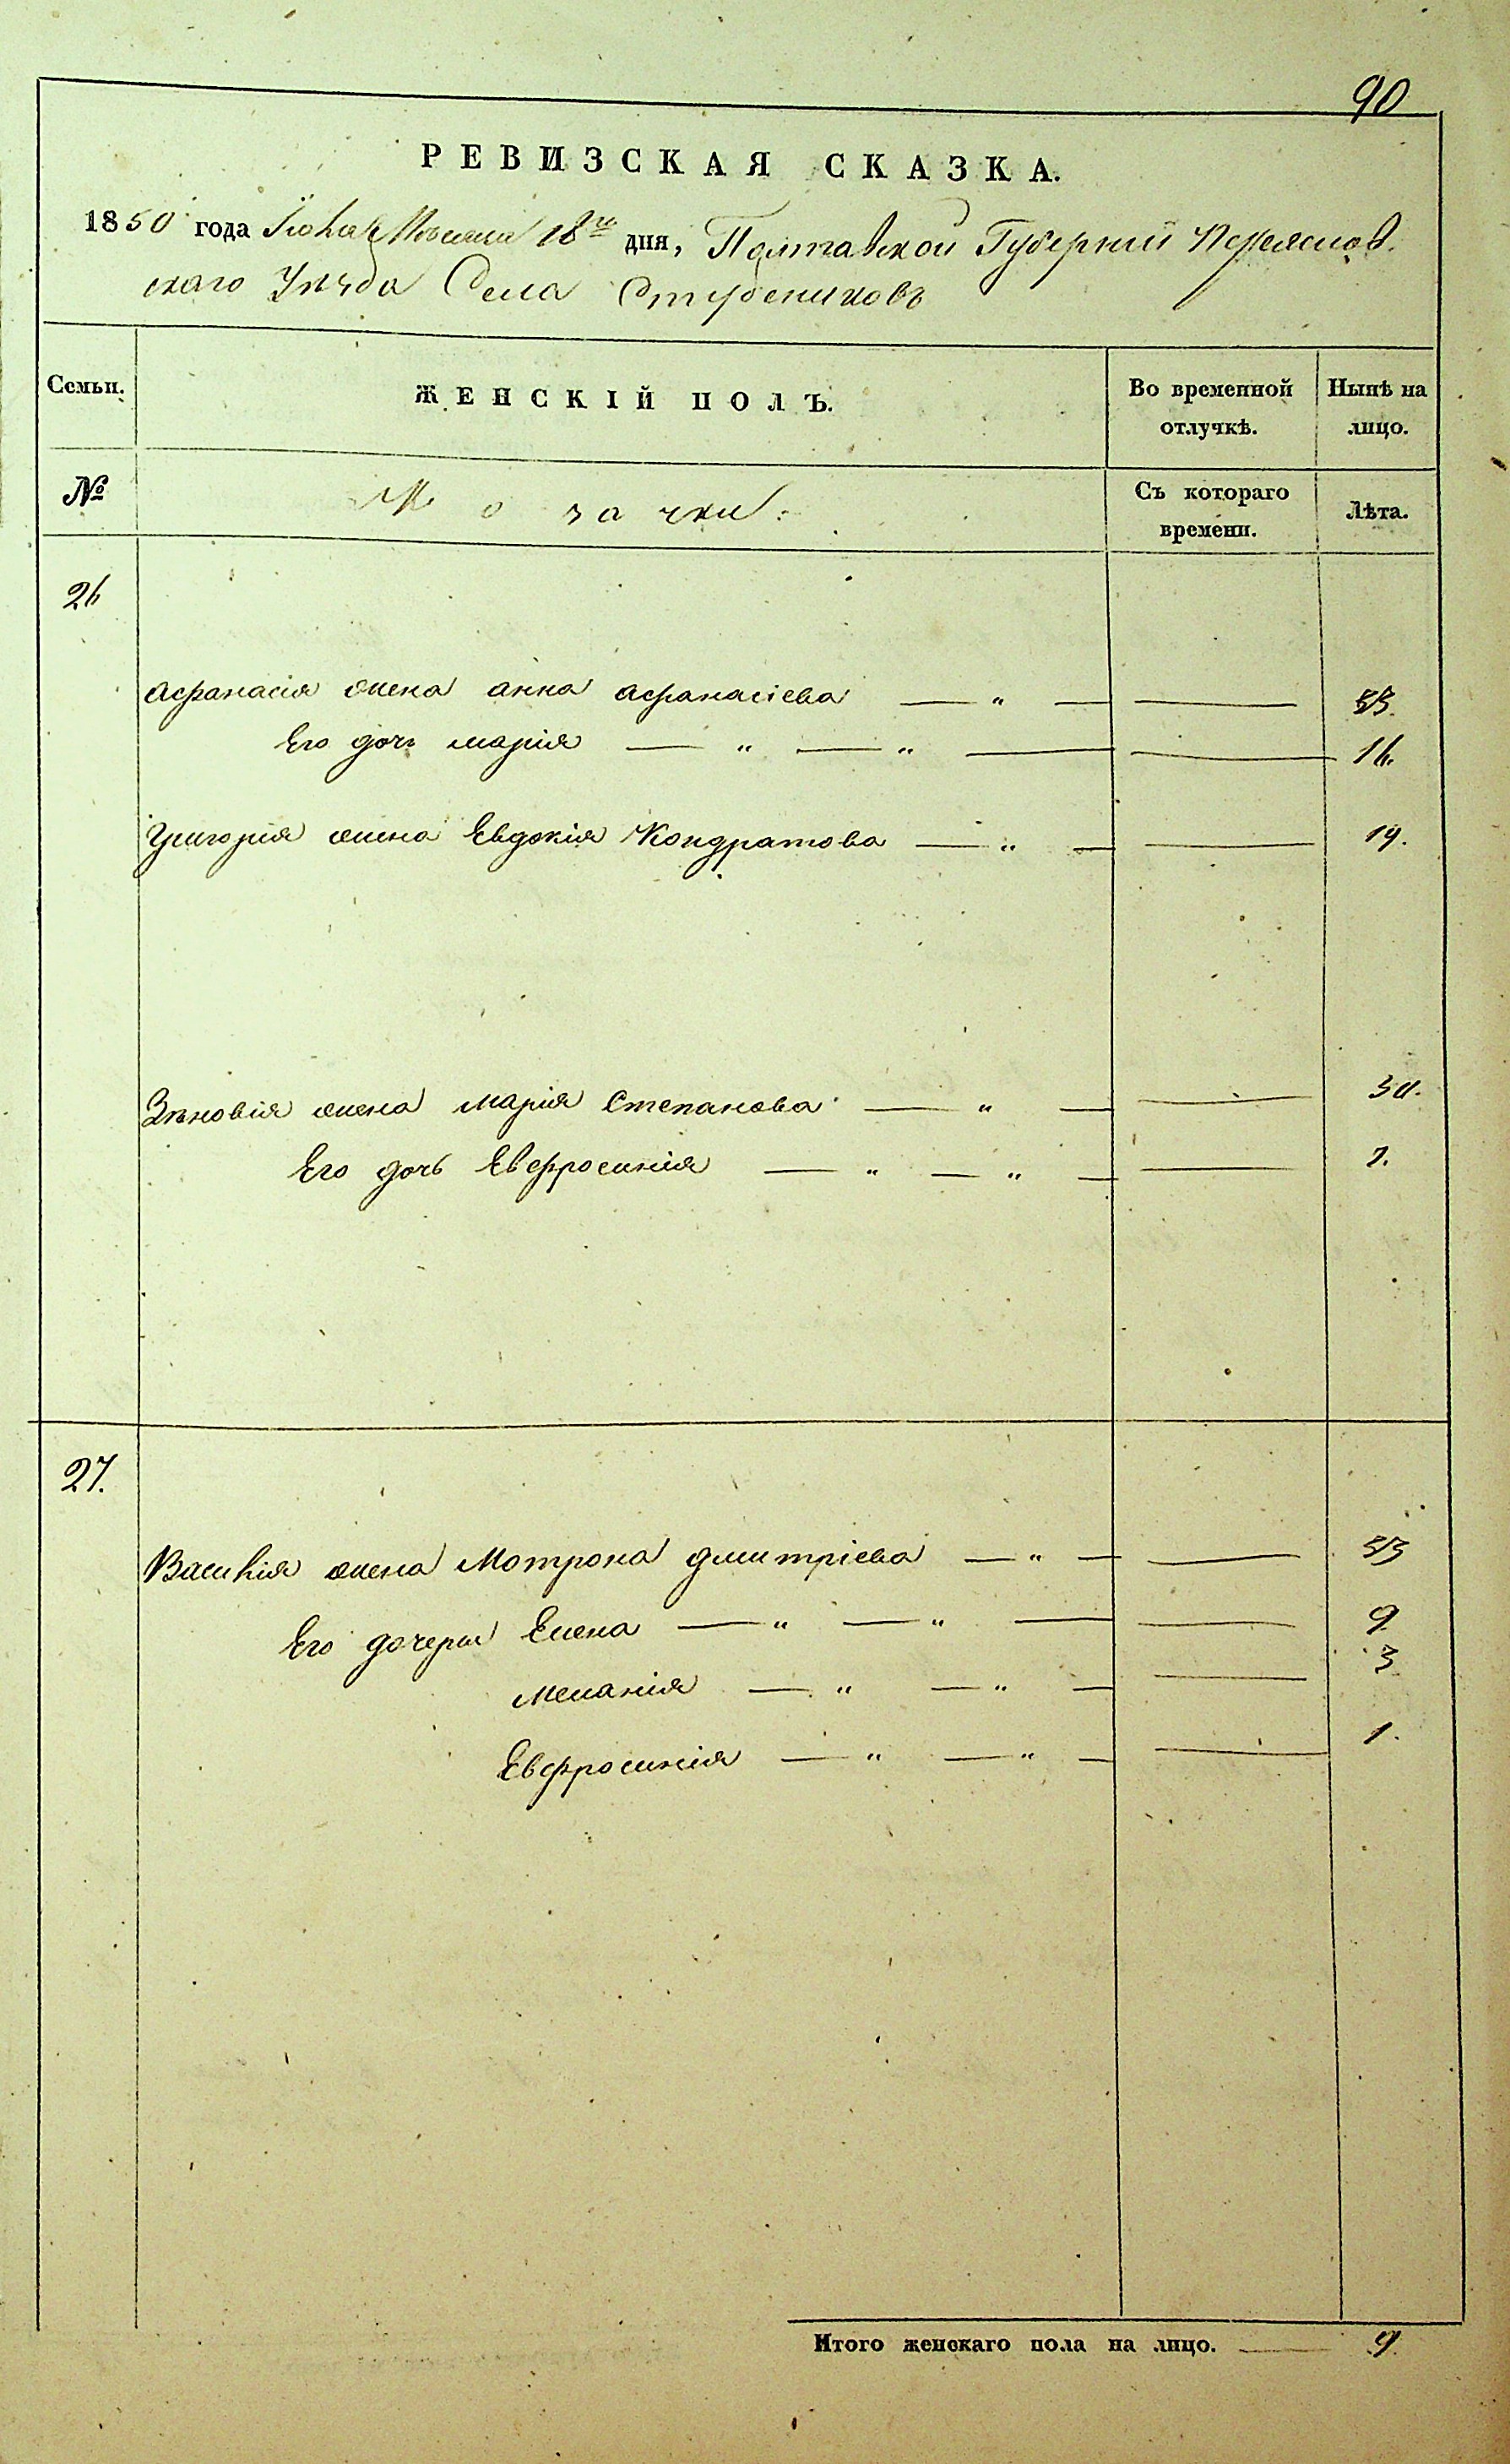 90
РЕВИЗСКАЯ СКАЗКА.
1850 года Іюля Мѣсяца 18го дня, Полтавской Губерніи Переяслов.
скаго Уѣзда Села Студениковъ
Семьи. ЖЕНСКІЙ ПОЛЪ. Во временной отлучкѣ. Нынѣ на лицо.
№ Козачки: Съ котораго времени. Лѣта.
26
Афанасія жена анна афанасіева — " — —
Его дочь марія — " — " — — 16.
Григорія жена Евдокія Кондратова — " — — 19.
Зѣновія жена марія Степанова — " — — 30.
Его дочь Евфросинія — " — " — —
27.
Василія жена Мотрона дмитріева — " — —
Его дочери Елена — " — " — — 9
меланія — " — " — — 3
Евфросинія — " — " — — 1.
Итого женскаго пола на лицо. — 9.